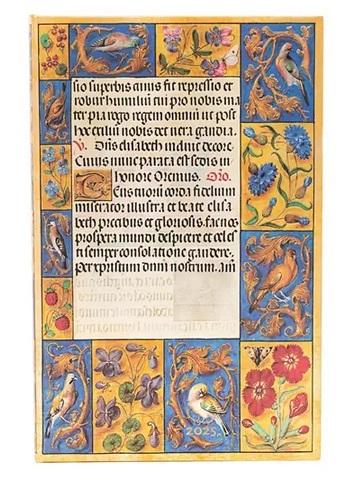 sio superbis animus fit repressio et
robur humilium cui pro nobis ma
ter pia regem regem omnium ut post
hoc exilium nobis det vera gaudia.
V. Diffusa est Elisabeth induit te decore.
Cuius nunc parata est sedis in
honore Oremus. Oro.
Tuorum corda fidelium
miserator illustra et beate elisa
beth precibus et gloriosis. fac nos
prospera mundi despicere et celes
ti semper consolatione gaudere.
Per christum dominum nostrum. am
2025